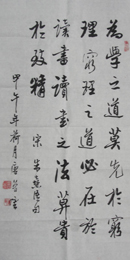 為學之道莫先於窮
理窮理之道必在於
讀書讀書之法莫貴
於致精 宋朱熹語句
甲午年